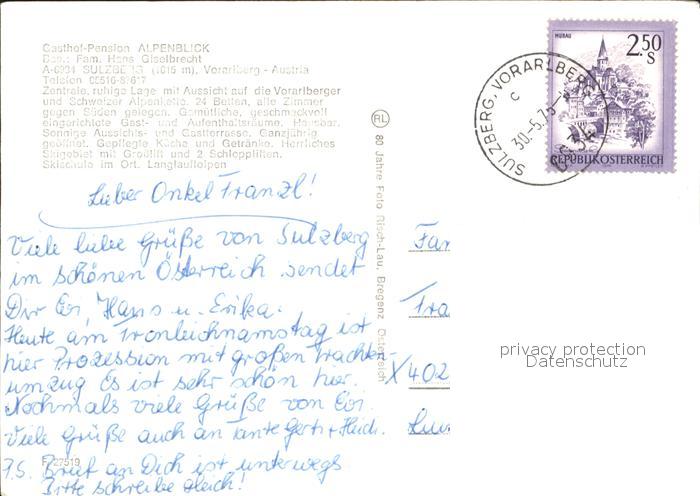 Gasthof-Pension ALPENBLICK
Bes.: Fam. Hans Giselbrecht
A-6934 SULZBERG (1015 m), Vorarlberg - Austria
Telefon
Zentrale, ruhige Lage mit Aussicht auf die Vorarlberger
und Schweizer Alpenkette. 24 Betten, alle Zimmer
gegen Süden gelegen. Gemütliche, geschmackvoll
eingerichtete Gast- und Aufenthaltsräume. Hausbar.
Sonnige Aussichts- und Gastterrasse. Ganzjährig
geöffnet. Gepflegte Küche und Getränke. Herrliches
Skigebiet mit Großlift und 2 Schleppliften.
Skischule im Ort. Langlaufloipen
Lieber Onkel Franzl!
Viele liebe Grüße von Sulzberg
im schönen Österreich sendet
Dir Evi, Hans u. Erika.
Heute am Fronleichnamstag ist
hier Prozession mit großen Trachten-
umzug Es ist sehr schön hier.
Nochmals viele Grüße von Evi.
Viele Grüße auch an Tante Gerti +
P.S. Brief an Dich ist unterwegs
Bitte schreibe gleich!
F 27519
RL
80 Jahre Foto Risch-Lau, Bregenz, Österreich
MURAU
2.50
S
REPUBLIK ÖSTERREICH
SULZBERG, VORARLBERG
c
30.-5.75-
6934
Fam
Fra
X402
privacy protection
Datenschutz